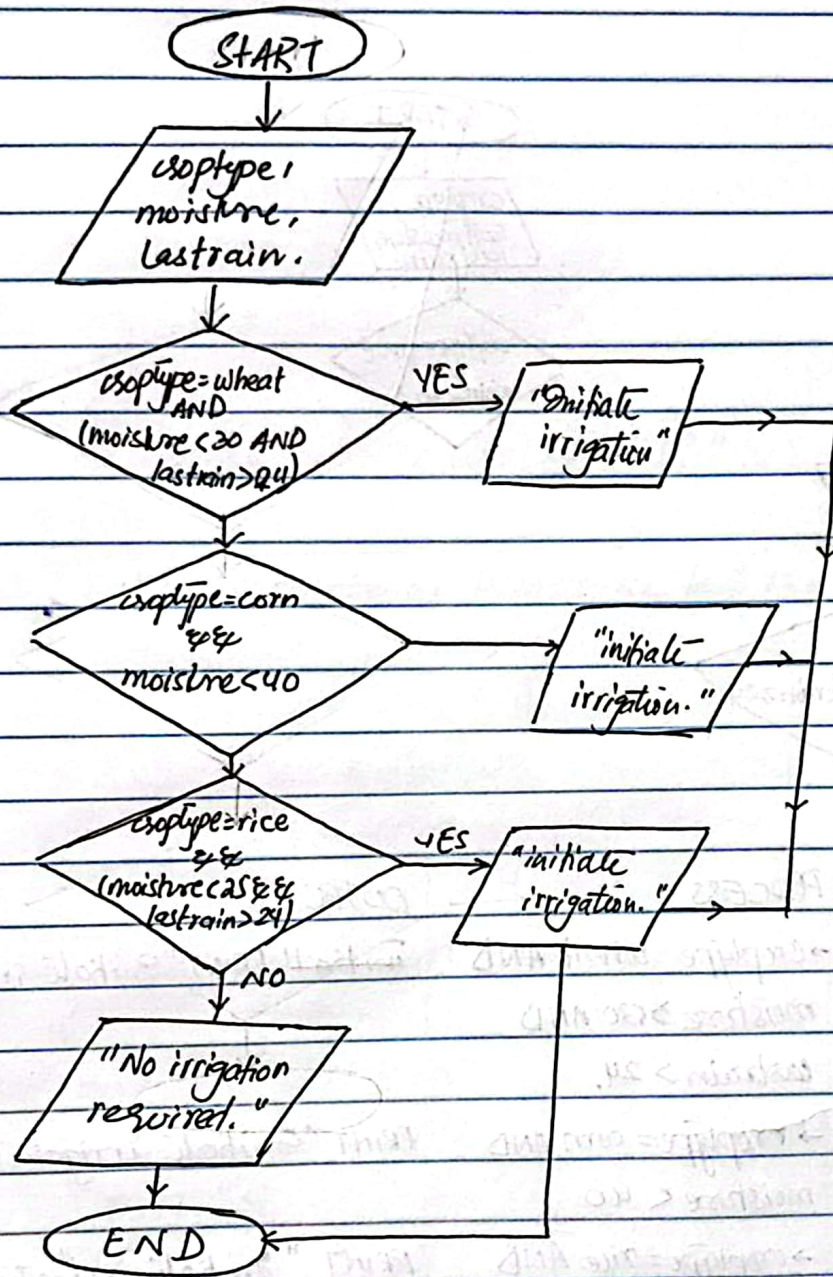 START
croptype,
moisture,
lastrain.
croptype=wheat
AND
(moisture<30 AND
lastrain>24)
YES
"Initiate
irrigation"
croptype=corn
&&
moisture<40
"initiate
irrigation."
croptype=rice
&&
(moisture<25&&
lastrain>24)
YES
"initiate
irrigation."
NO
"No irrigation
required."
END